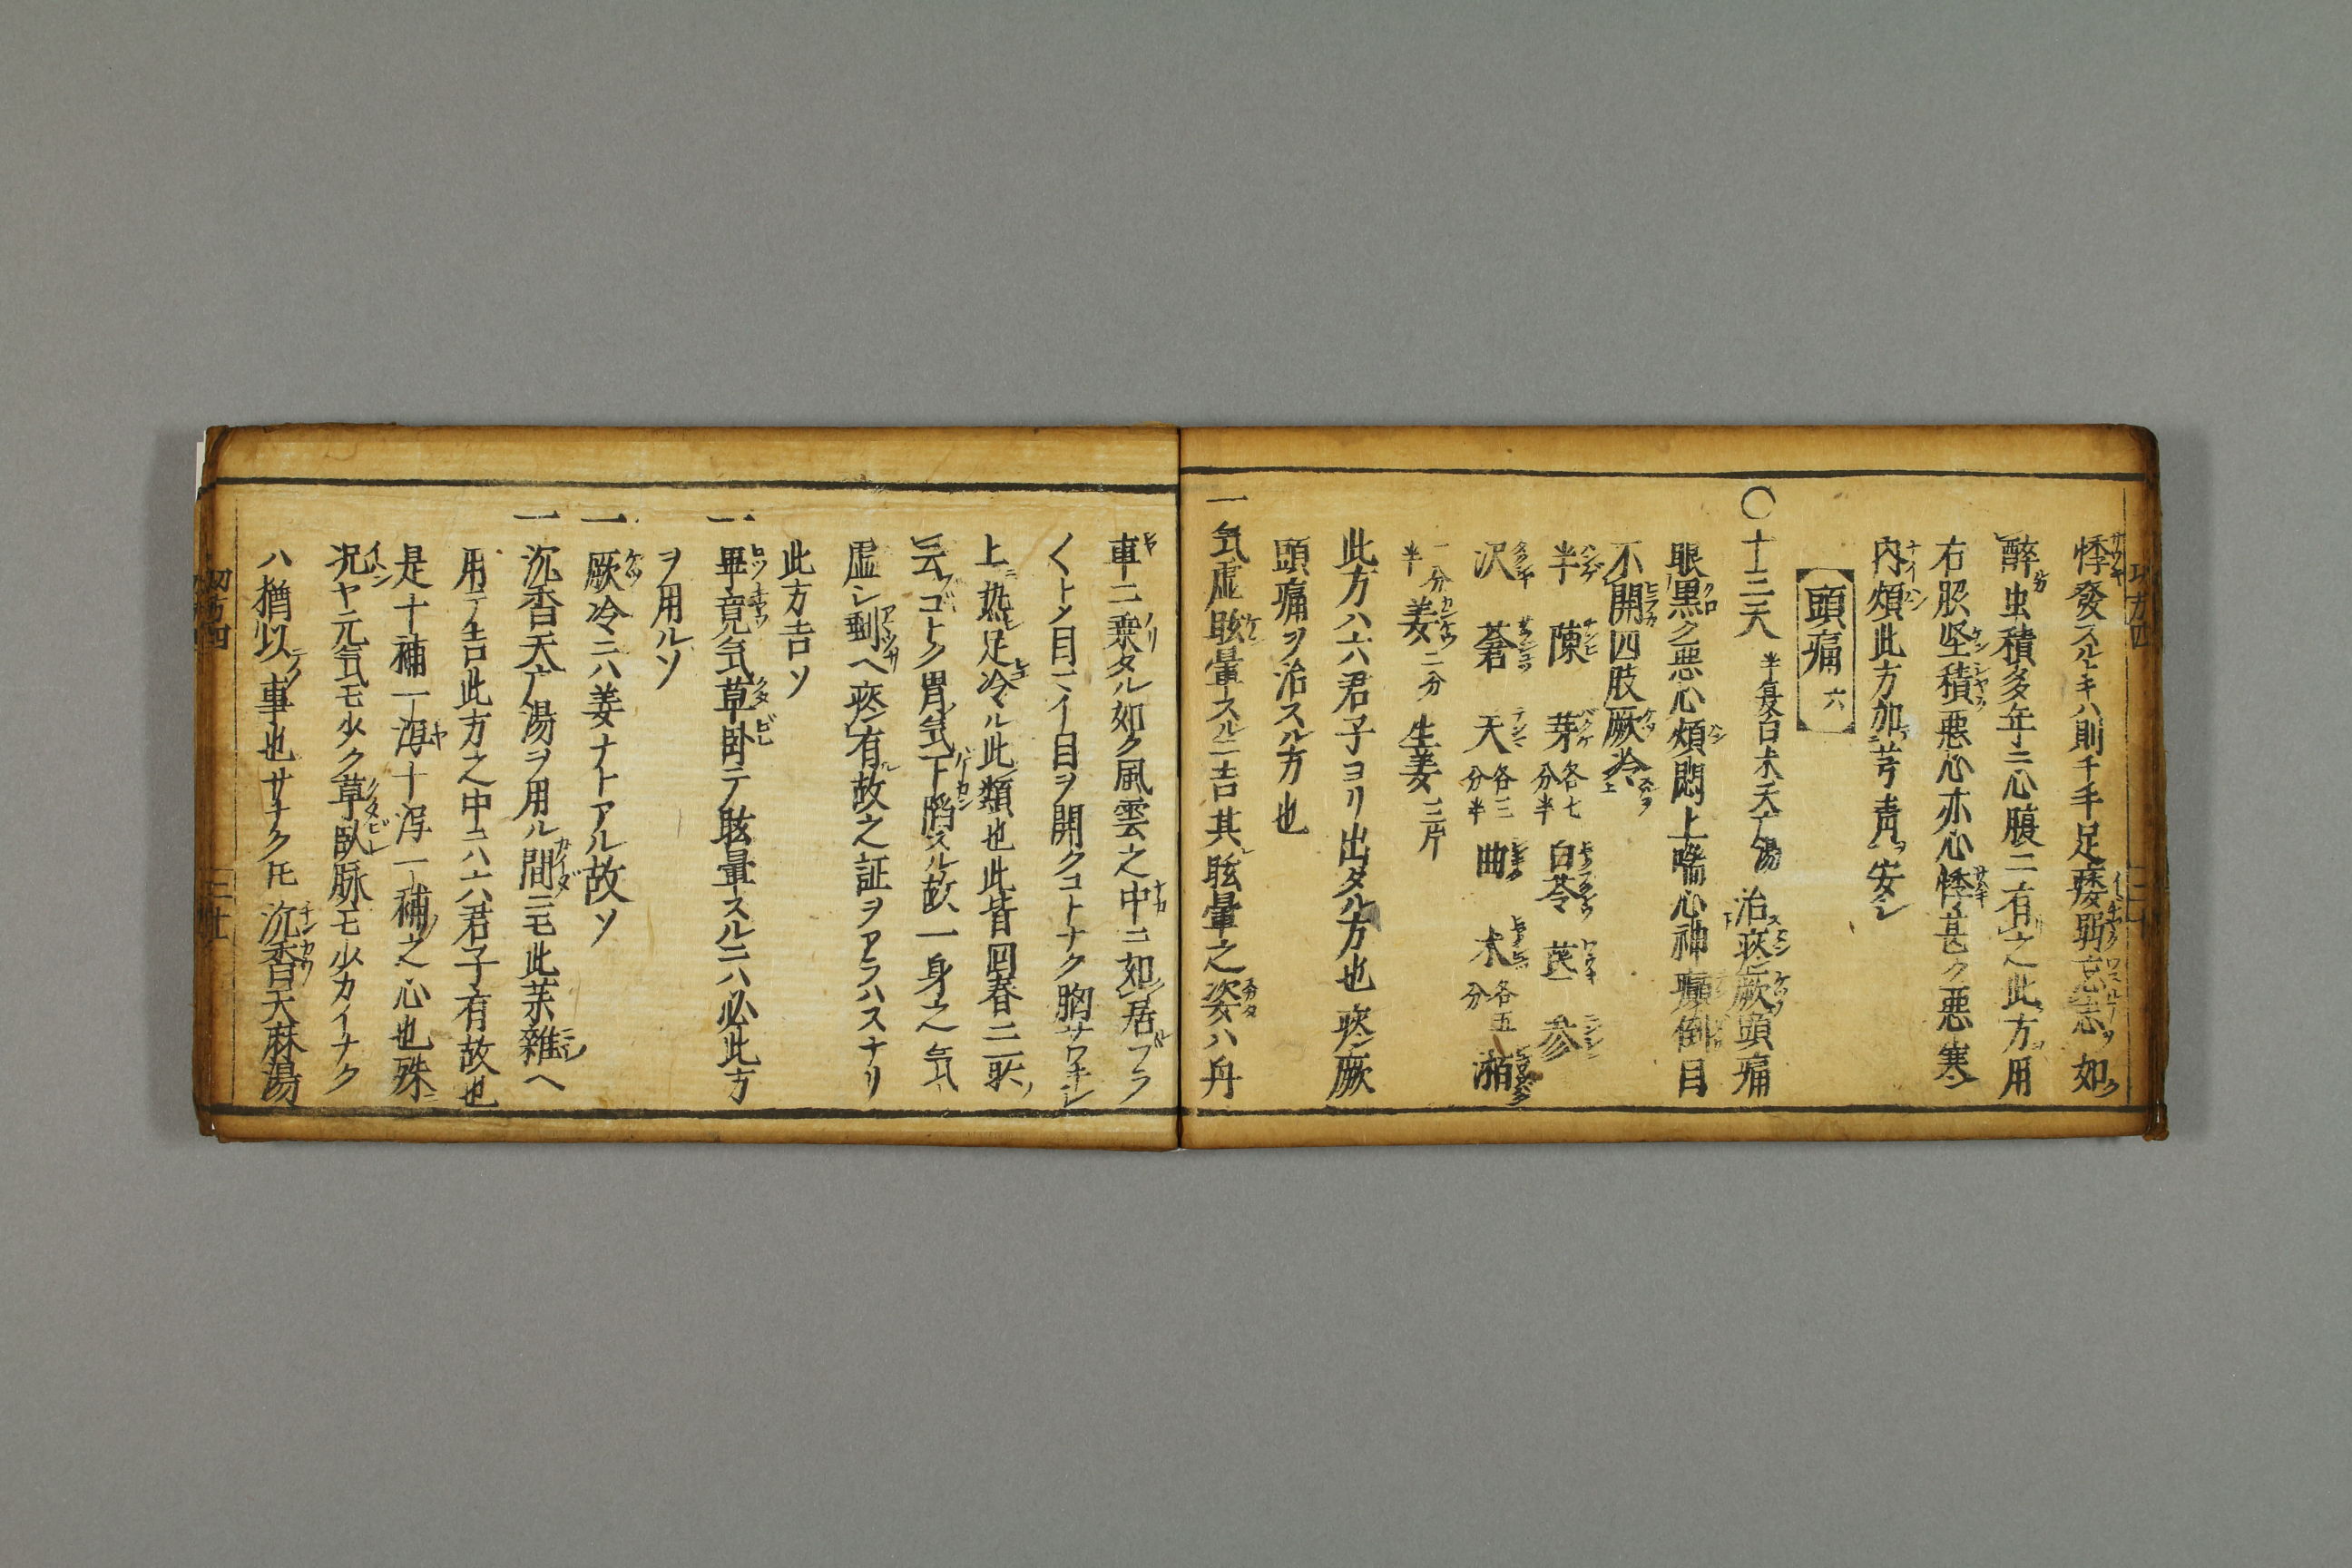 悸發スルキハ則千手足痿弱忘志ヲ如ク
醉虫積多年ニ心腹ニ有之此方用
右股堅積悪心亦心悸甚ク悪寒シ
内煩此方加芎青ヲ安シ
頭痛 六
〇十三天 半夏白朮天广湯 治痰厥頭痛
眼黒ク悪心煩悶上喘心神顛倒目
不開四肢厥冷
半 陳 芽 各七分半 白茯 茋 参
沢 蒼 天 各三分半 曲 朮 各五分 栢
一分半 姜 二分 生姜 三片
此方ハ六君子ヨリ出タル方也痰厥
頭痛ヲ治スル方也
一気虚眩暈スルニ吉其眩暈之姿ハ舟
車ニ乗タル如ク風雲之中ニ如居フラ
〱トメ目ニイ目ヲ開クコトナク胸サワキシ
上熱足冷ル此類也此皆回春ニ載
云コトク胃気下陥スル故一身之気
虚シ剰ヘ痰有故之証ヲアラハスナリ
此方吉ソ
一畢竟気草臥テ眩暈スルニハ必此方
ヲ用ルソ
一厥冷ニハ姜ナトアル故ソ
一沉香天广湯ヲ用ル間ニモ此茶雜ヘ
用テ吉此方之中ニハ六君子有故也
是十補一瀉十瀉一補之心也殊ニ
况ヤ元気モ少ク草臥脉モ少カイナク
ハ猶以事也サナク圧沉香天麻湯